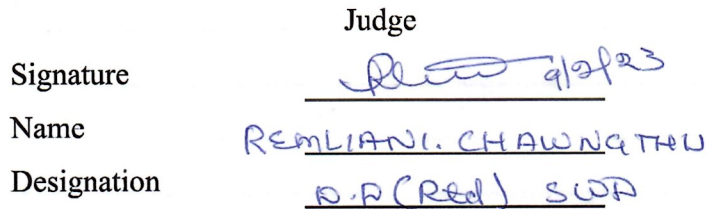 Judge
Signature 9/2/23
Name REMLIANI. CHAWNGTHU
Designation D.D (Retd) SWD